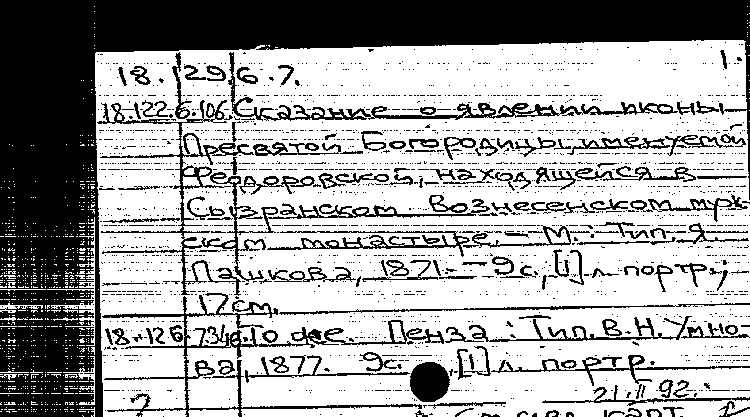 18.129.6.7. 1.
18.122.6.106. Сказание о явлении иконы
Пресвятой Богородицы, именуемой
Феодоровской, находящейся в
Сызранском Вознесенском муж
ском монастыре. – М.: Тип. Я.
Пашкова, 1871. – 9с., [1] л. портр.;
17см.
18.126.7346. То же. Пенза: Тип. В.Н. Умно-
ва, 1877. 9с. , [1] л. портр.
21.II.92.
?